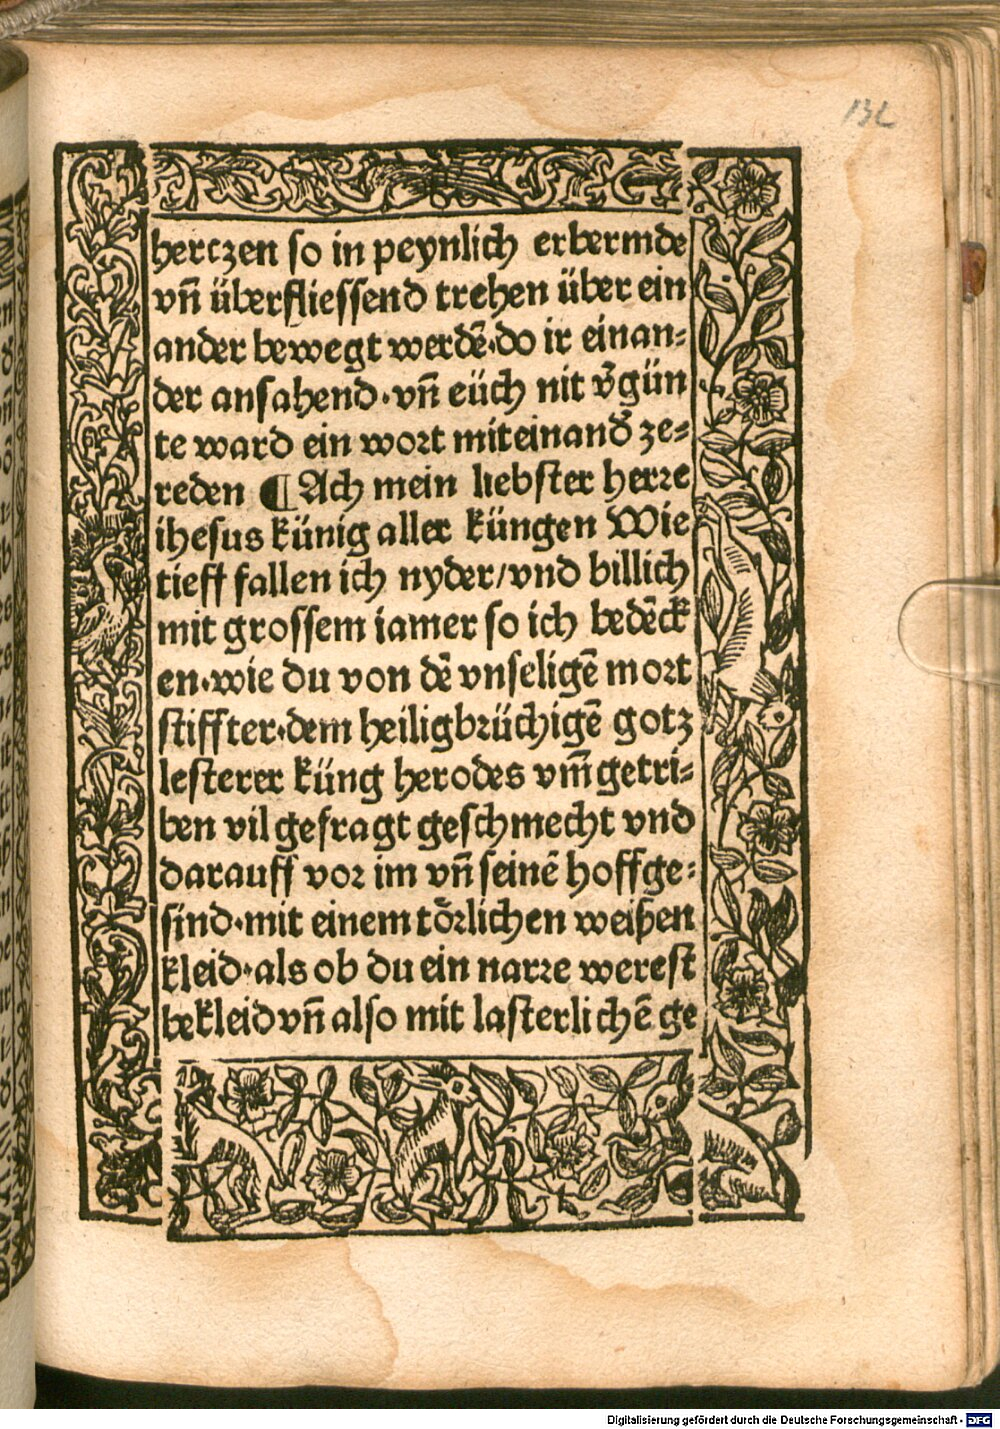 132
herczen so in peynlich erbermde
vn̄ überfliessend trehen über ein
ander bewegt werdē·do ir einan⸗
der ansahend·vn̄ eüch nit v̄gün
te ward ein wort miteinand̄ ze⸗
reden ¶ Ach mein liebster herre
ihesus künig aller küngen Wie
tieff fallen ich nyder/vnd billich
mit grossem iamer so ich bedēck
en·wie du von dē vnseligē mort
stiffter·dem heiligbrüchigē gotz
lesterer küng herodes vm̄getri⸗
ben vil gefragt geschmecht vnd
darauff vor im vn̄ seinē hoffge⸗
sind·mit einem törlichen weißen
kleid·als ob du ein narre werest
bekleid vn̄ also mit lasterlichē ge
Digitalisierung gefördert durch die Deutsche Forschungsgemeinschaft - DFG